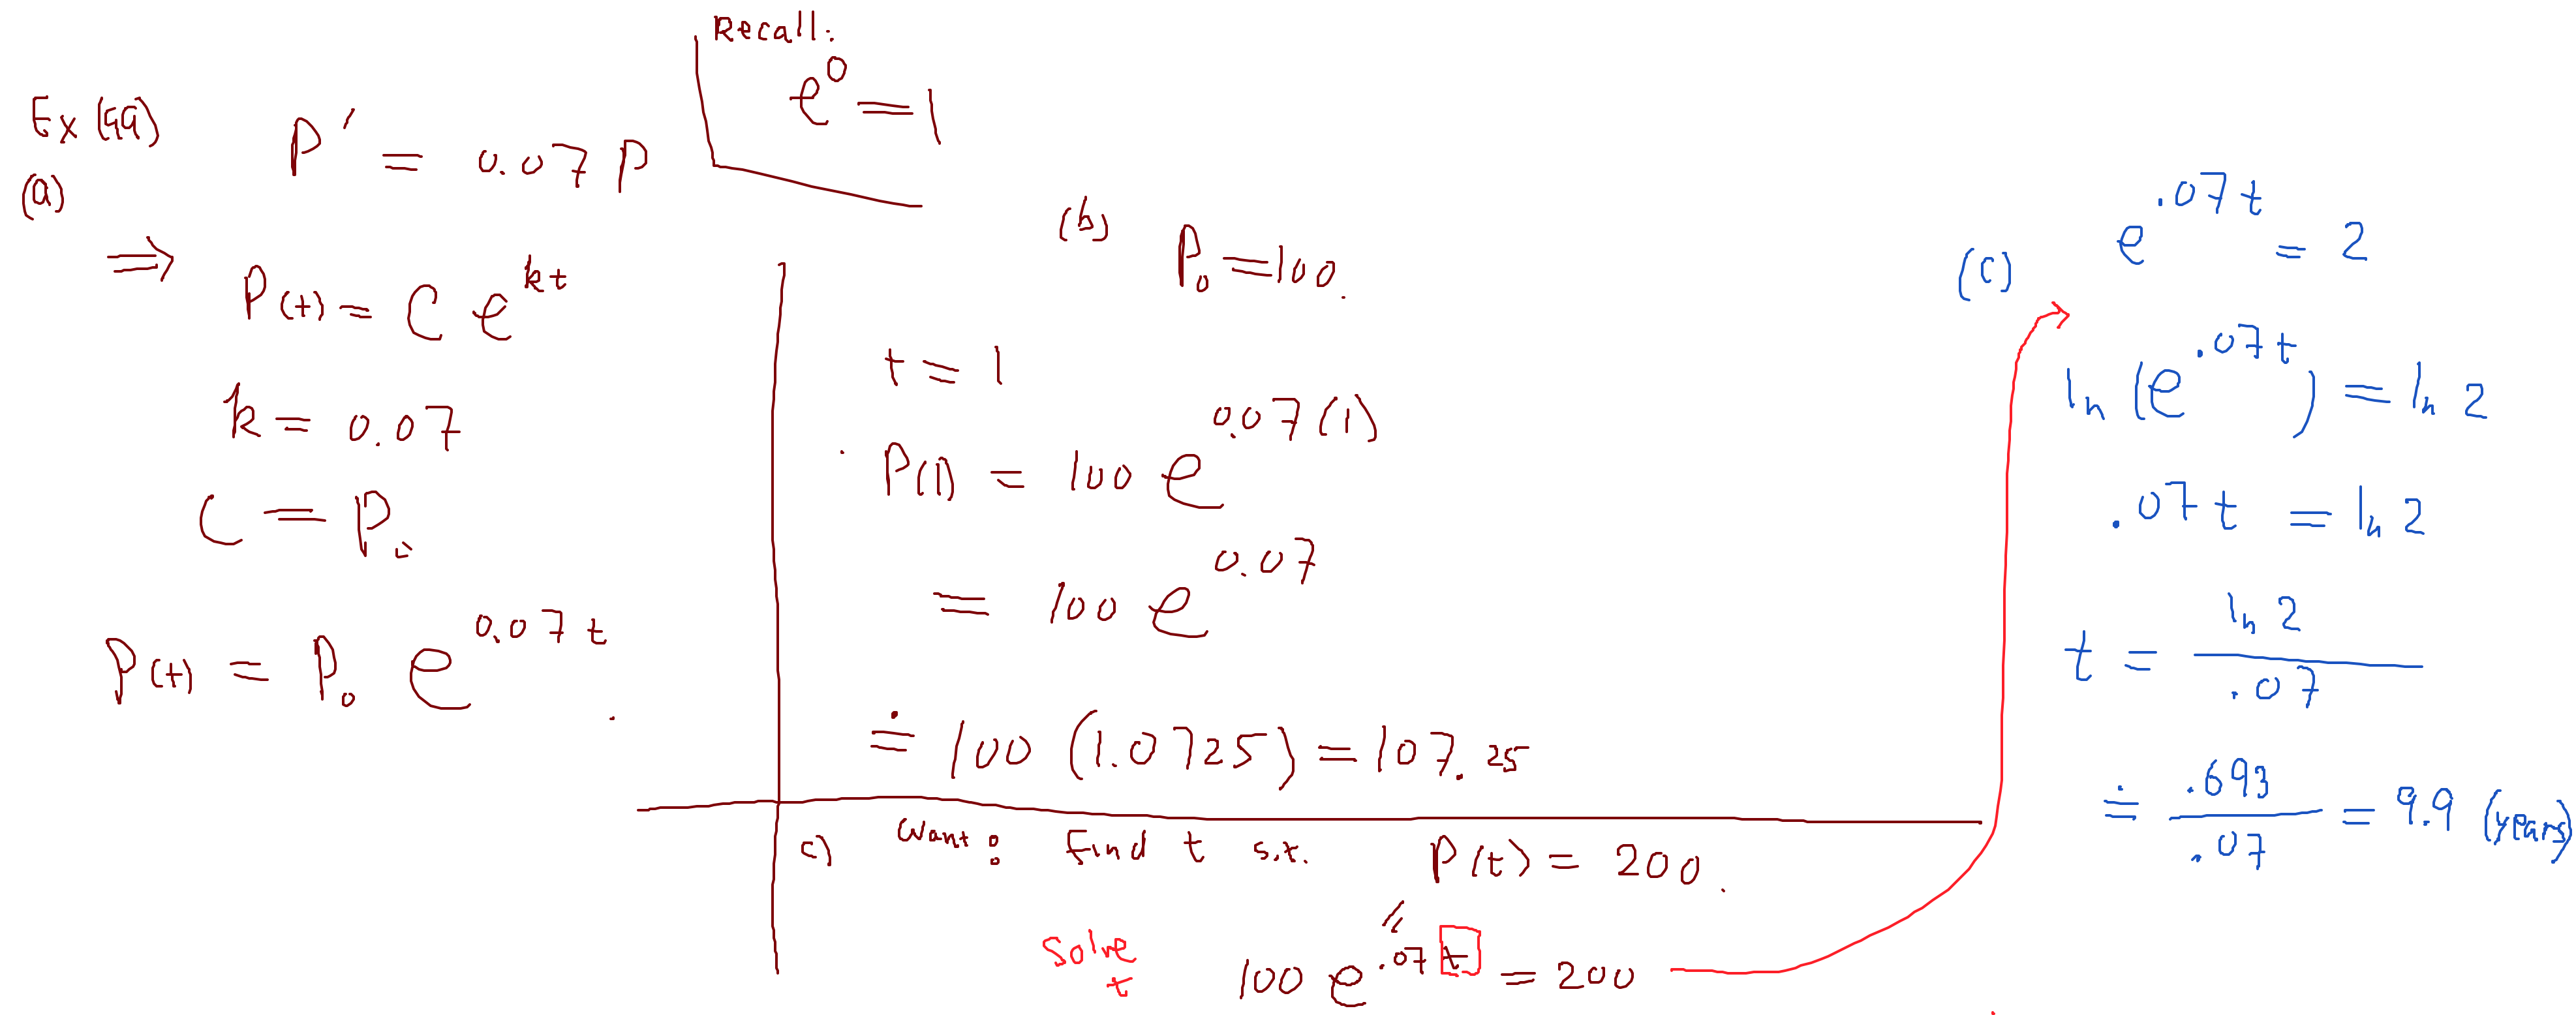 Recall:
e^0 = 1
Ex (4a)
(a)
P' = 0.07 P
⇒ P(t) = C e^{kt}
k = 0.07
C = P₀
P(t) = P₀ e^{0.07 t}.
(b) P₀ = 100.
t = 1
P(1) = 100 e^{0.07(1)}
= 100 e^{0.07}
≐ 100 (1.0725) = 107.25
c) Want: Find t s.t. P(t) = 200.
Solve
t
100 e^{.07 t} = 200
(c)
e^{.07 t} = 2
ln (e^{.07 t}) = ln 2
.07 t = ln 2
t = ln 2 / .07
≐ .693 / .07 = 9.9 (years)